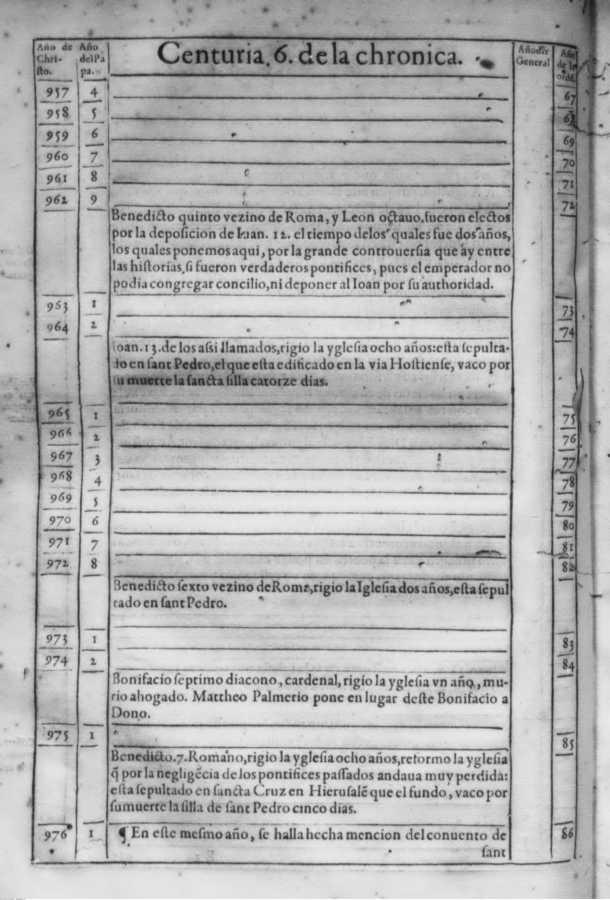 Año de Christo. Año del Papa. Centuria. 6. de la chronica. Añodſie General Año de la ordē
957 4 67
958 5 68
959 6 69
960 7 70
961 8 71
962 9 72
Benedicto quinto vezino de Roma, y Leon octauo, fueron electos
por la depoſicion de Iuan. 12. el tiempo delos quales fue dos años,
los quales ponemos aqui, por la grande controuerſia que ay entre
las hiſtorias, ſi fueron verdaderos pontifices, pues el emperador no
podia congregar concilio, ni deponer al Ioan por ſu authoridad.
963 1 73
964 2 74
Ioan. 13. de los aſsi llamados, rigio la ygleſia ocho años: eſta ſepulta-
do en ſant Pedro, el que eſta edificado en la via Hoſtienſe, vaco por
ſu muerte la ſancta ſilla catorze dias.
965 1 75
966 2 76
967 3 77
968 4 78
969 5 79
970 6 80
971 7 81
972 8 82
Benedicto ſexto vezino de Roma, rigio la Igleſia dos años, eſta ſepul
tado en ſant Pedro.
973 1 83
974 2 84
Bonifacio ſeptimo diacono, cardenal, rigio la ygleſia vn año, mu-
rio ahogado. Mattheo Palmerio pone en lugar deſte Bonifacio a
Dono.
975 1 85
Benedicto. 7. Romano, rigio la ygleſia ocho años, reformo la ygleſia
q̃ por la negligẽcia de los pontifices paſſados andaua muy perdida:
eſta ſepultado en ſancta Cruz en Hieruſalẽ que el fundo, vaco por
ſu muerte la ſilla de ſant Pedro cinco dias.
976 1 ¶ En eſte meſmo año, ſe halla hecha mencion del conuento de 86
ſant